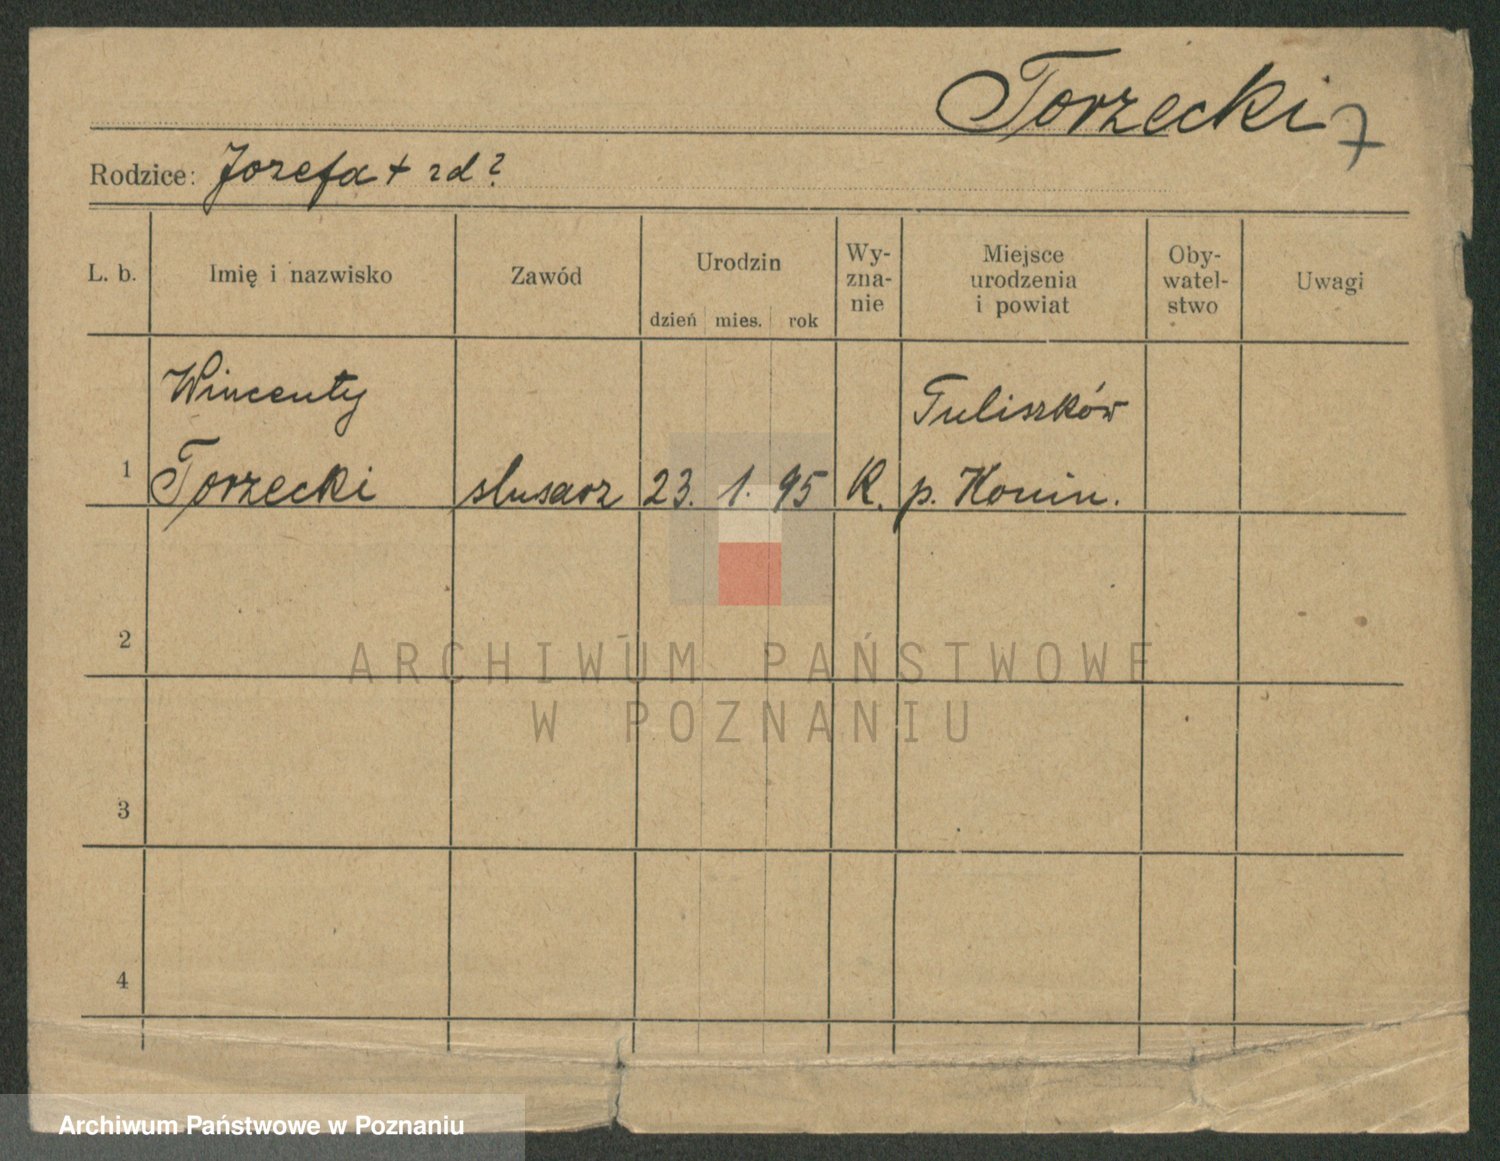 Torzecki 7
Rodzice: Jozefa + zd?
L. b.
Imię i nazwisko
Zawód
Urodzin
dzień mies. rok
Wy-
zna-
nie
Miejsce
urodzenia
i powiat
Oby-
watel-
stwo
Uwagi
Wincenty Tuliszków
1 Torzecki slusarz 23. 1. 95 R. p. Konin.
2
3
4
ARCHIWUM PAŃSTWOWE
W POZNANIU
Archiwum Państwowe w Poznaniu